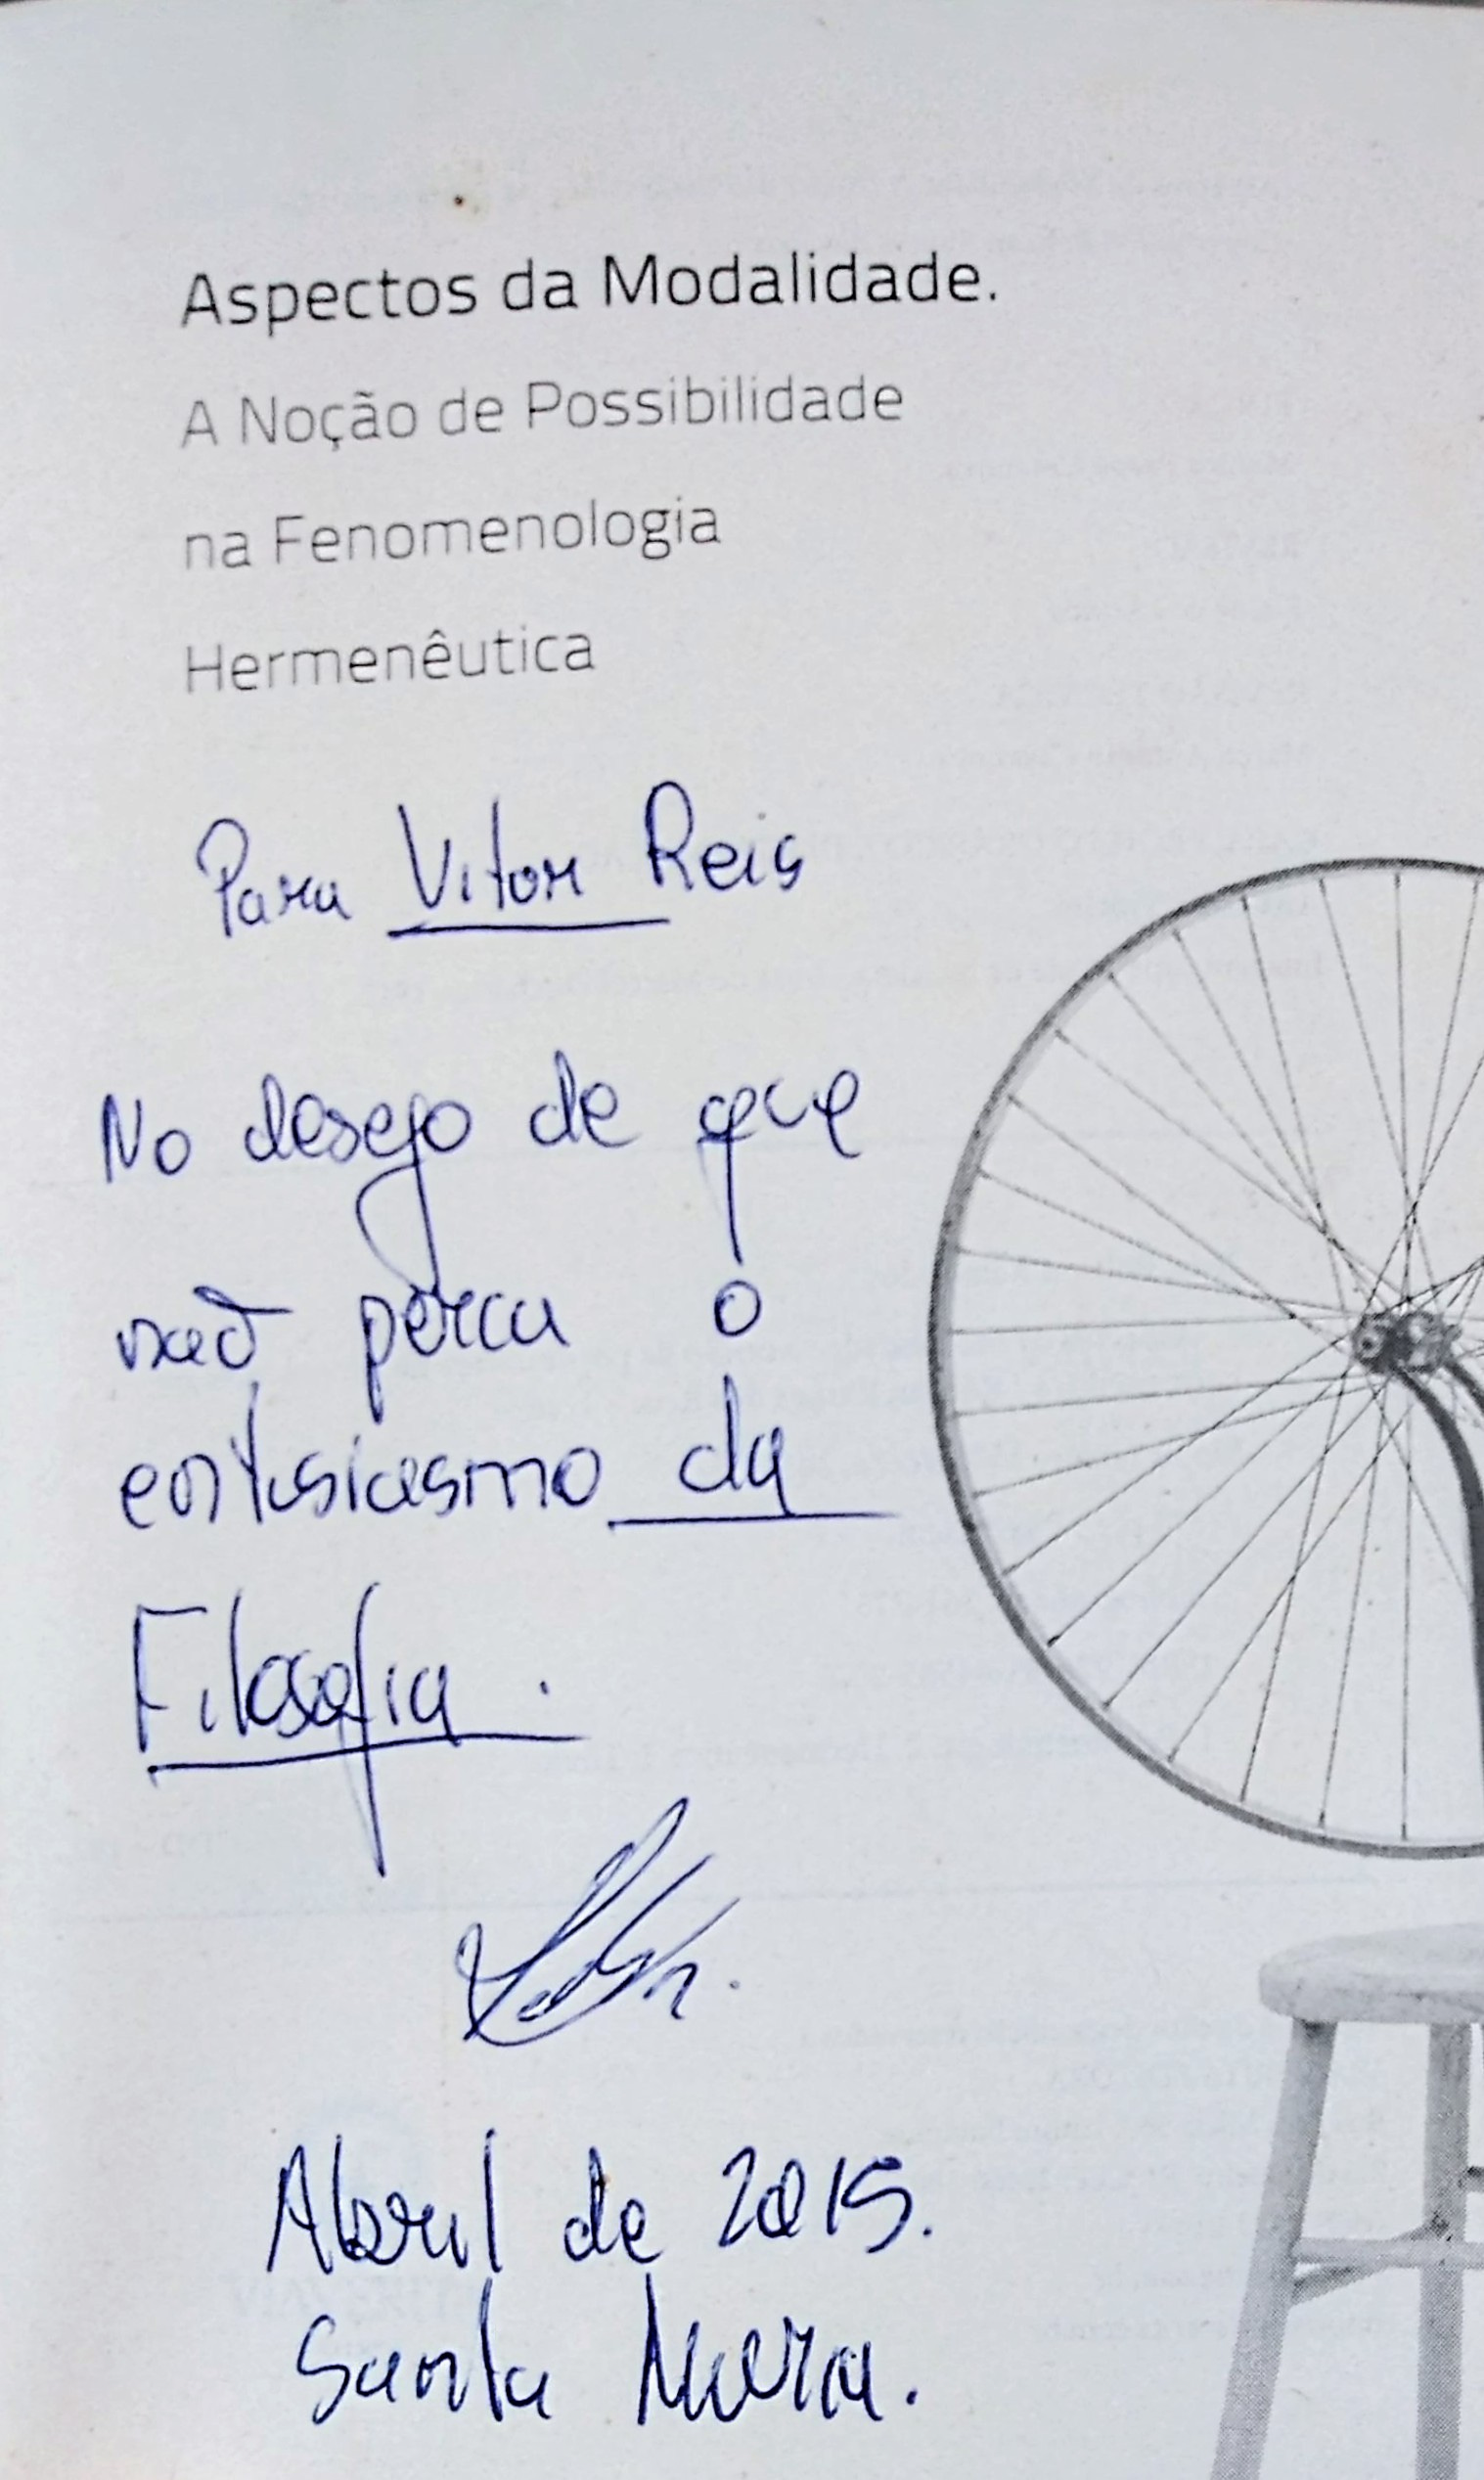 Aspectos da Modalidade.
A Noção de Possibilidade
na Fenomenologia
Hermenêutica
Para Vitor Reis
No desejo de que
não perca o
entusiasmo da
Filosofia.
Abril de 2015.
Santa Maria.